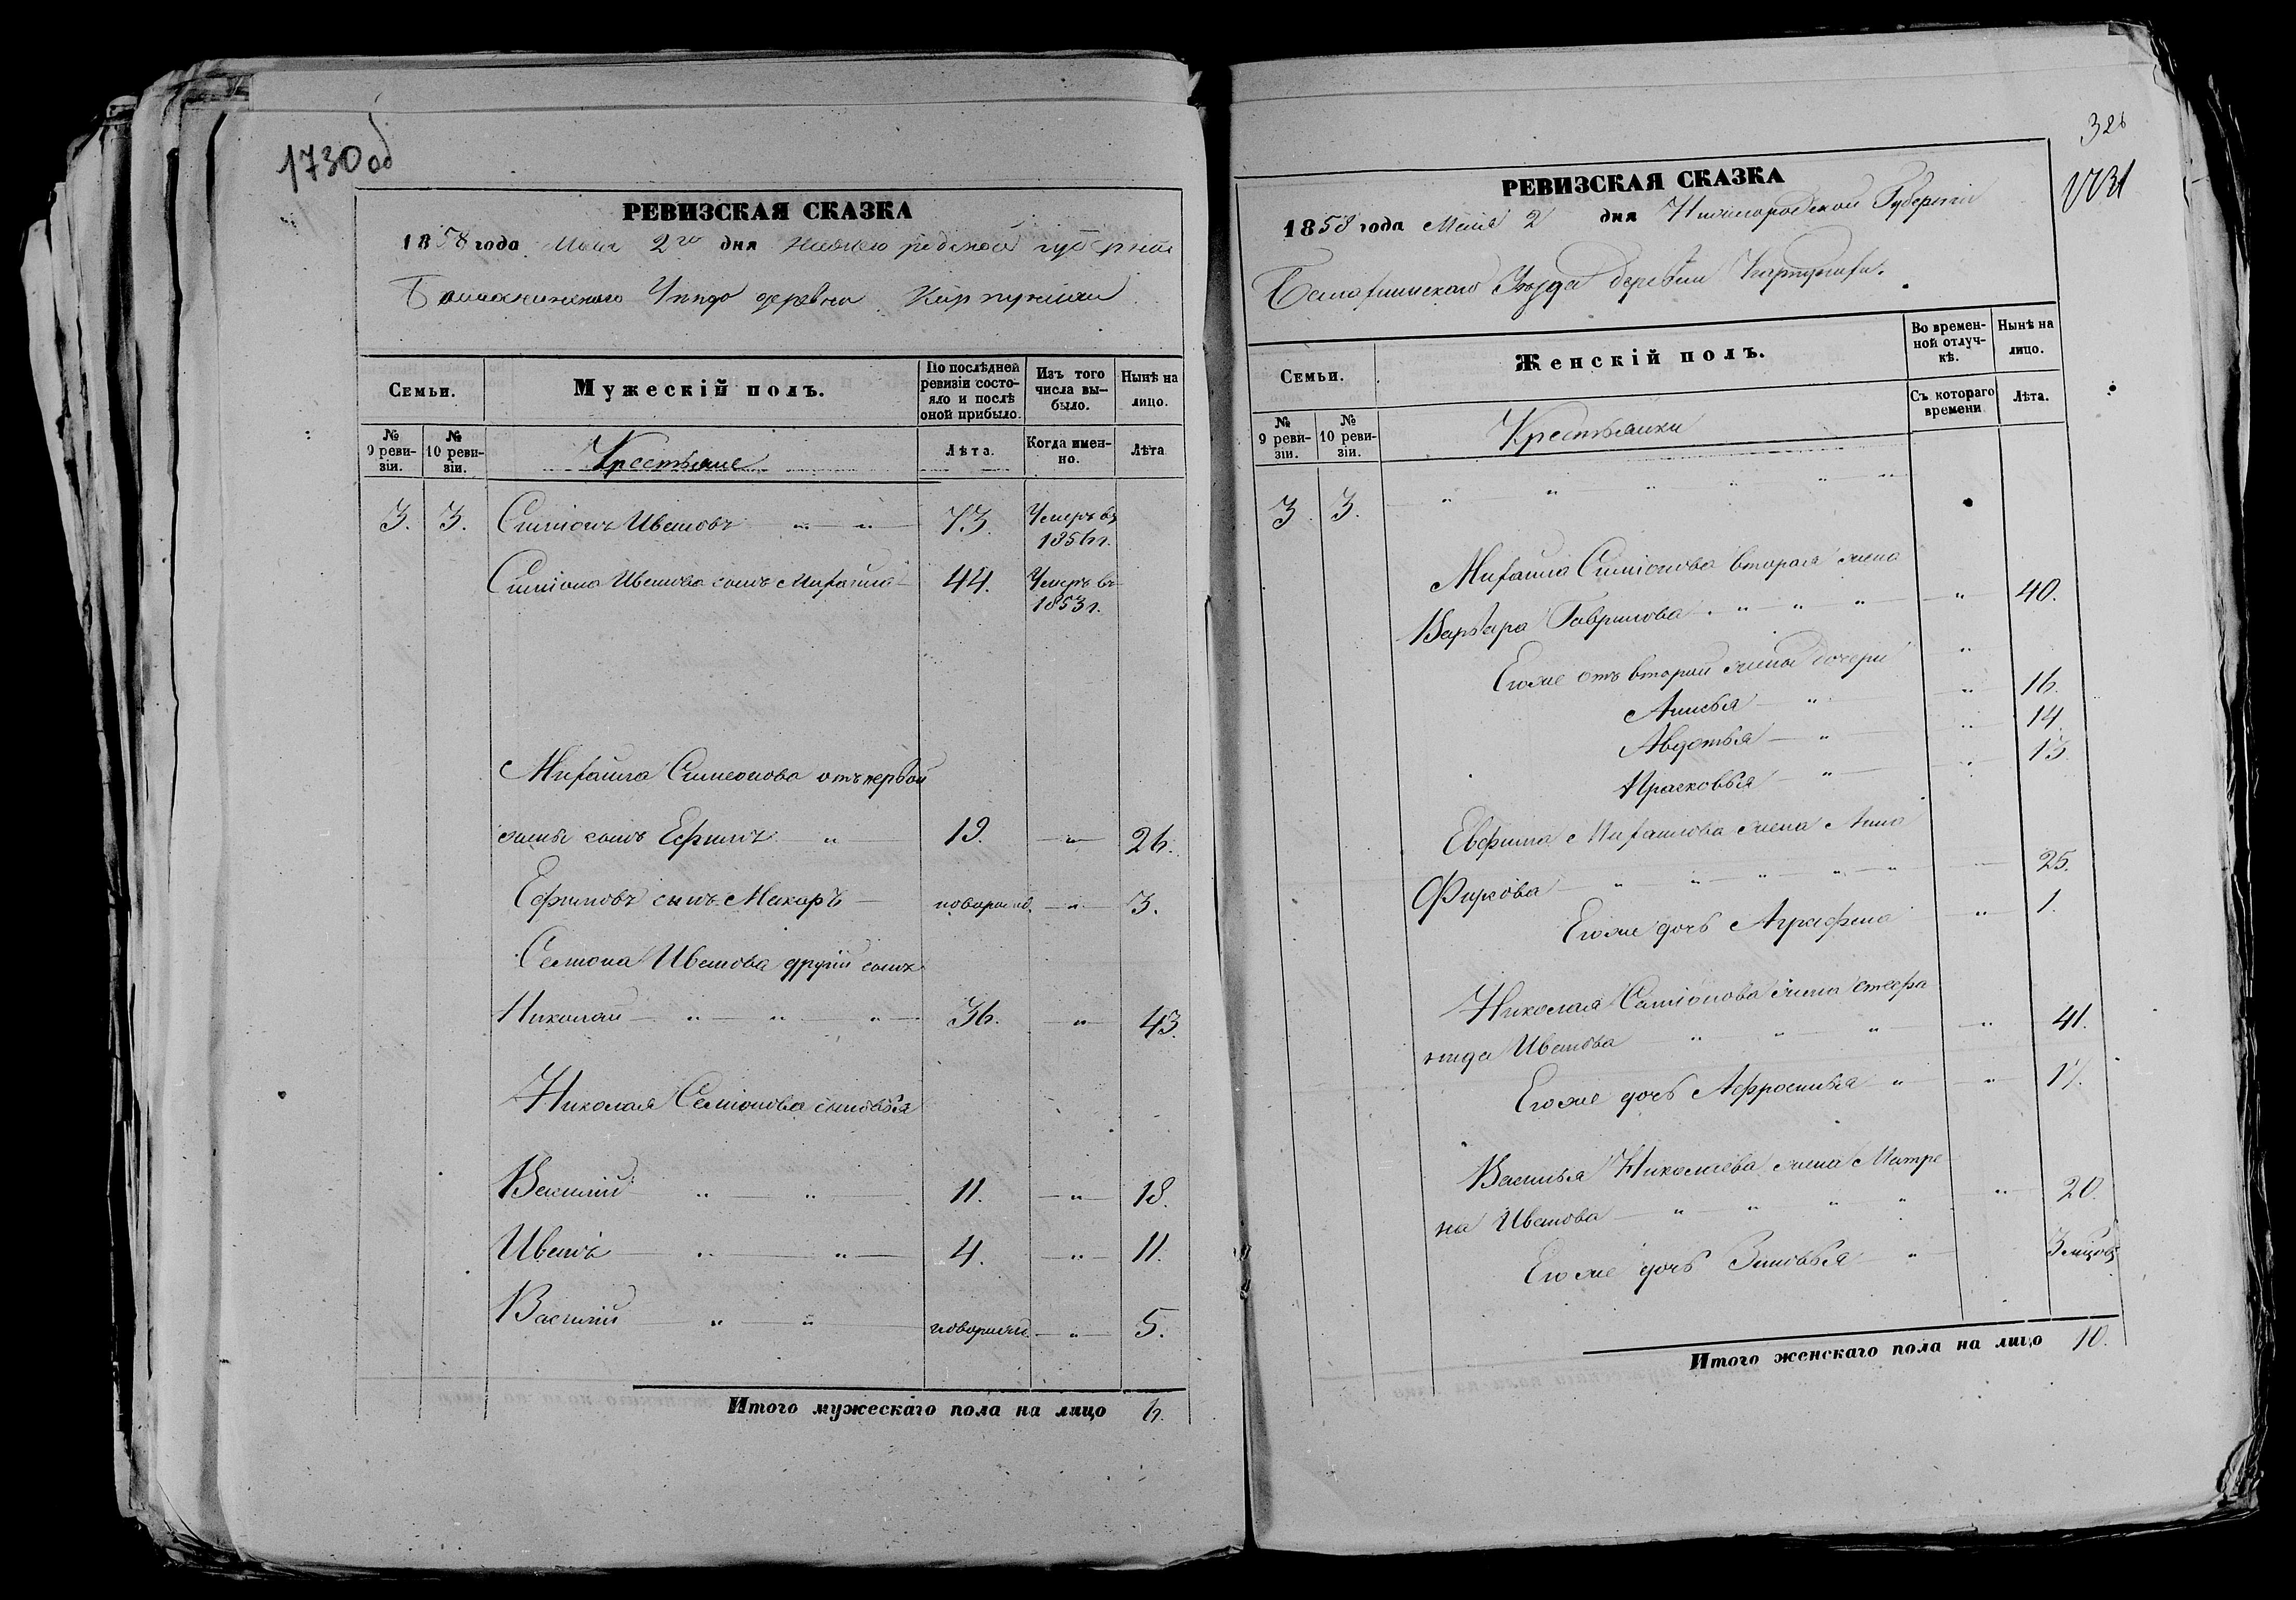 1730 об
РЕВИЗСКАЯ СКАЗКА
1858 года Маія 2го дня Нижегородской губерніи
Балахнинскаго Уезда деревни Карпунихи
Семьи.
Мужескій полъ.
По послѣдней ревизіи состояло и послѣ оной прибыло.
Изъ того числа выбыло.
Нынѣ на лицо.
№ 9 ревизіи.
№ 10 ревизіи.
Крестьяне
Лѣта.
Когда именно.
Лѣта
3. 3. Симіонъ Ивановъ 73. Умеръ въ 1856 г.
Симіона Иванова сынъ Михаилъ 44. Умеръ въ 1853 г.
Михаила Симеонова отъ первой
жены сынъ Ефимъ 19. 26.
Ефимовъ сынъ Макаръ новорожд. 3.
Семіона Иванова другій сынъ
Николай 36. 43.
Николая Семіонова сыновья
Василій 11. 18.
Иванъ 4. 11.
Василій новорожд. 5.
Итого мужескаго пола на лицо 6.
326
1731
РЕВИЗСКАЯ СКАЗКА
1858 года Маія 2 дня Нижегородской Губерніи
Балахнинскаго Уезда деревни Карпунихи.
Семьи.
Женскій полъ.
Во временной отлучкѣ.
Нынѣ на лицо.
Съ котораго времени
Лѣта.
№ 9 ревизіи.
№ 10 ревизіи.
Крестьянки
3. 3.
Михаила Симіонова вторая жена
Варвара Гаврилова 40.
Его же отъ второй жены дочери
Анисья 16.
Авдотья 14.
Прасковья 13
Евфима Михаилова жена Анна
Фиркова 25.
Его же дочь Аграфена 1.
Николая Семіонова жена Степа
нида Иванова 41.
Его же дочь Афросинья 17.
Василья Николаева жена Матре
на Иванова 20.
Его же дочь Зиновья 3 мѣсяцъ
Итого женскаго пола на лицо 10.